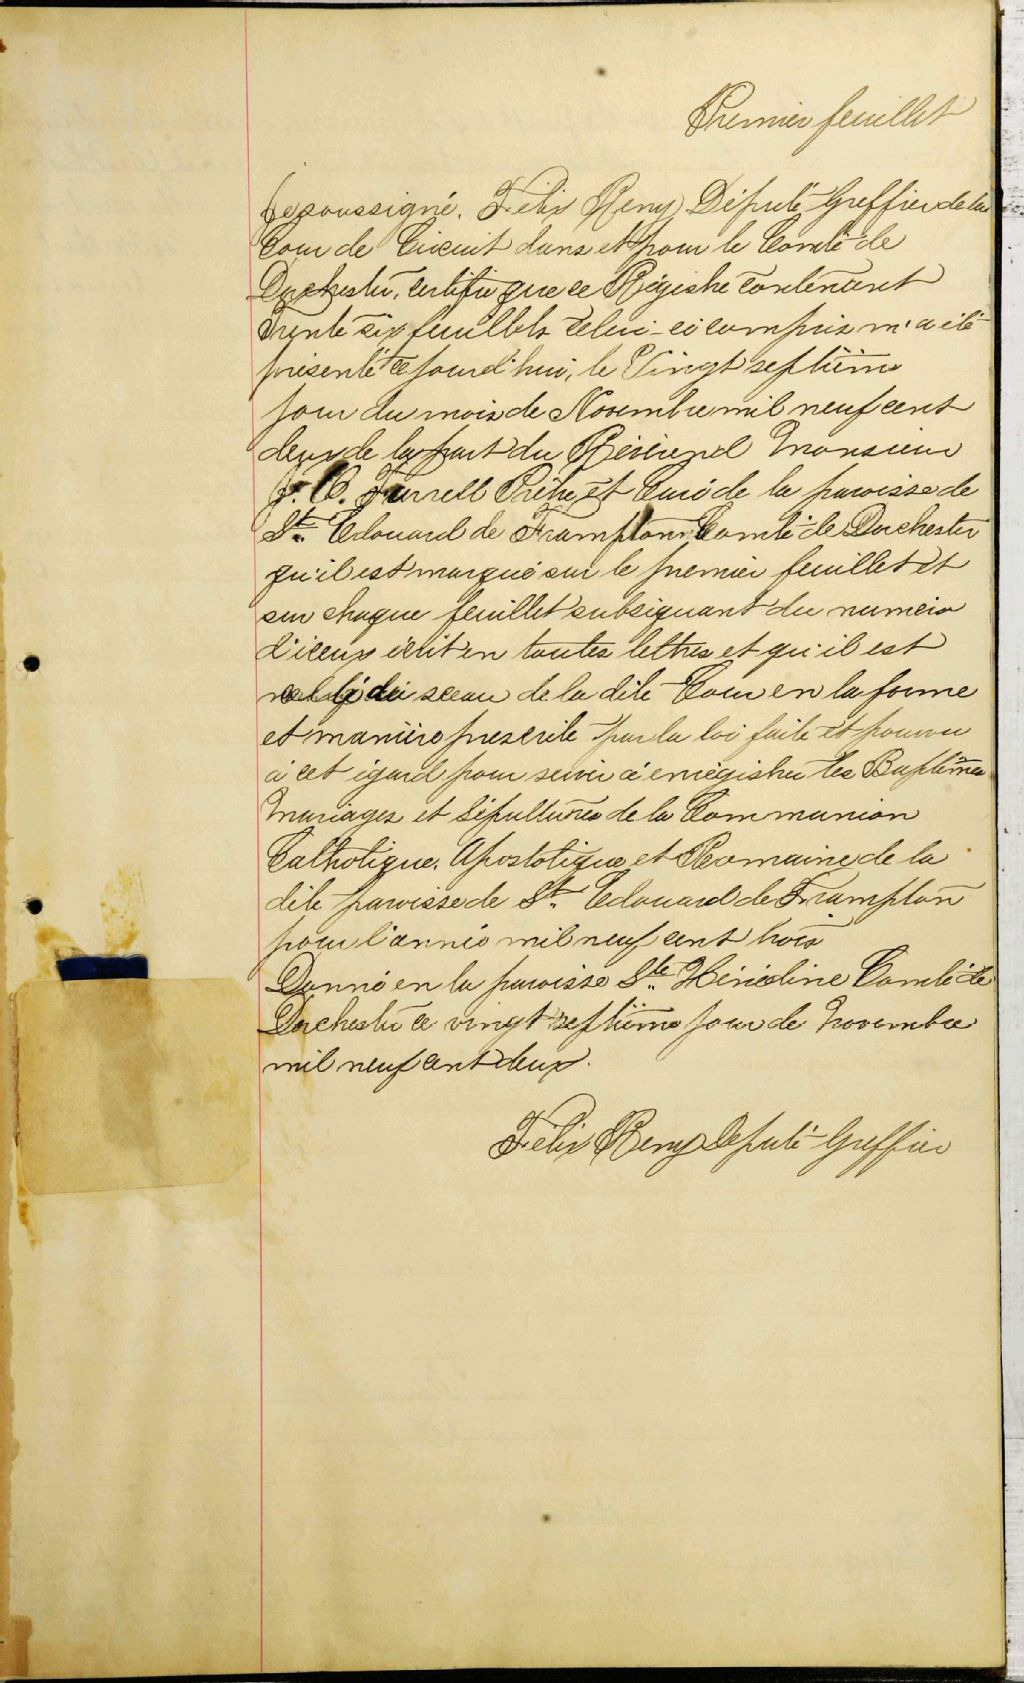 Premier feuillet
Je soussigné, Félix Remy Député Greffier de la
Cour de Circuit dans et pour le Comté de
Dorchester, certifie que ce Régistre contenant
Trente six feuillets celui-ci compris m'a été
présenté ce jourd'hui, le Vingt septième
jour du mois de Novembre mil neuf cent
deux de la part du Révérend Monsieur
Farrell Prêtre, et Curé de la paroisse de
St. Edouard de Frampton Comté de Dorchester
qu'il est marqué sur le premier feuillet et
sur chaque feuillet subséquant du numéro
d'iceux écrit en toutes lettres et qu'il est
du sceau de la dite Cour en la forme
et manière prescrite par la loi faite et pourvu
à cet égard pour servir à enrégistrer les Baptêmes
Mariages et Sépultures de la Communion
Catholique, Apostolique et Romaine de la
dite paroisse de St. Edouard de Frampton
pour l'année mil neuf cent trois
Donné en la paroisse Ste. Hénédine Comté de
Dorchester ce vingt septième jour de Novembre
mil neuf cent deux.
Félix Remy Député Greffier